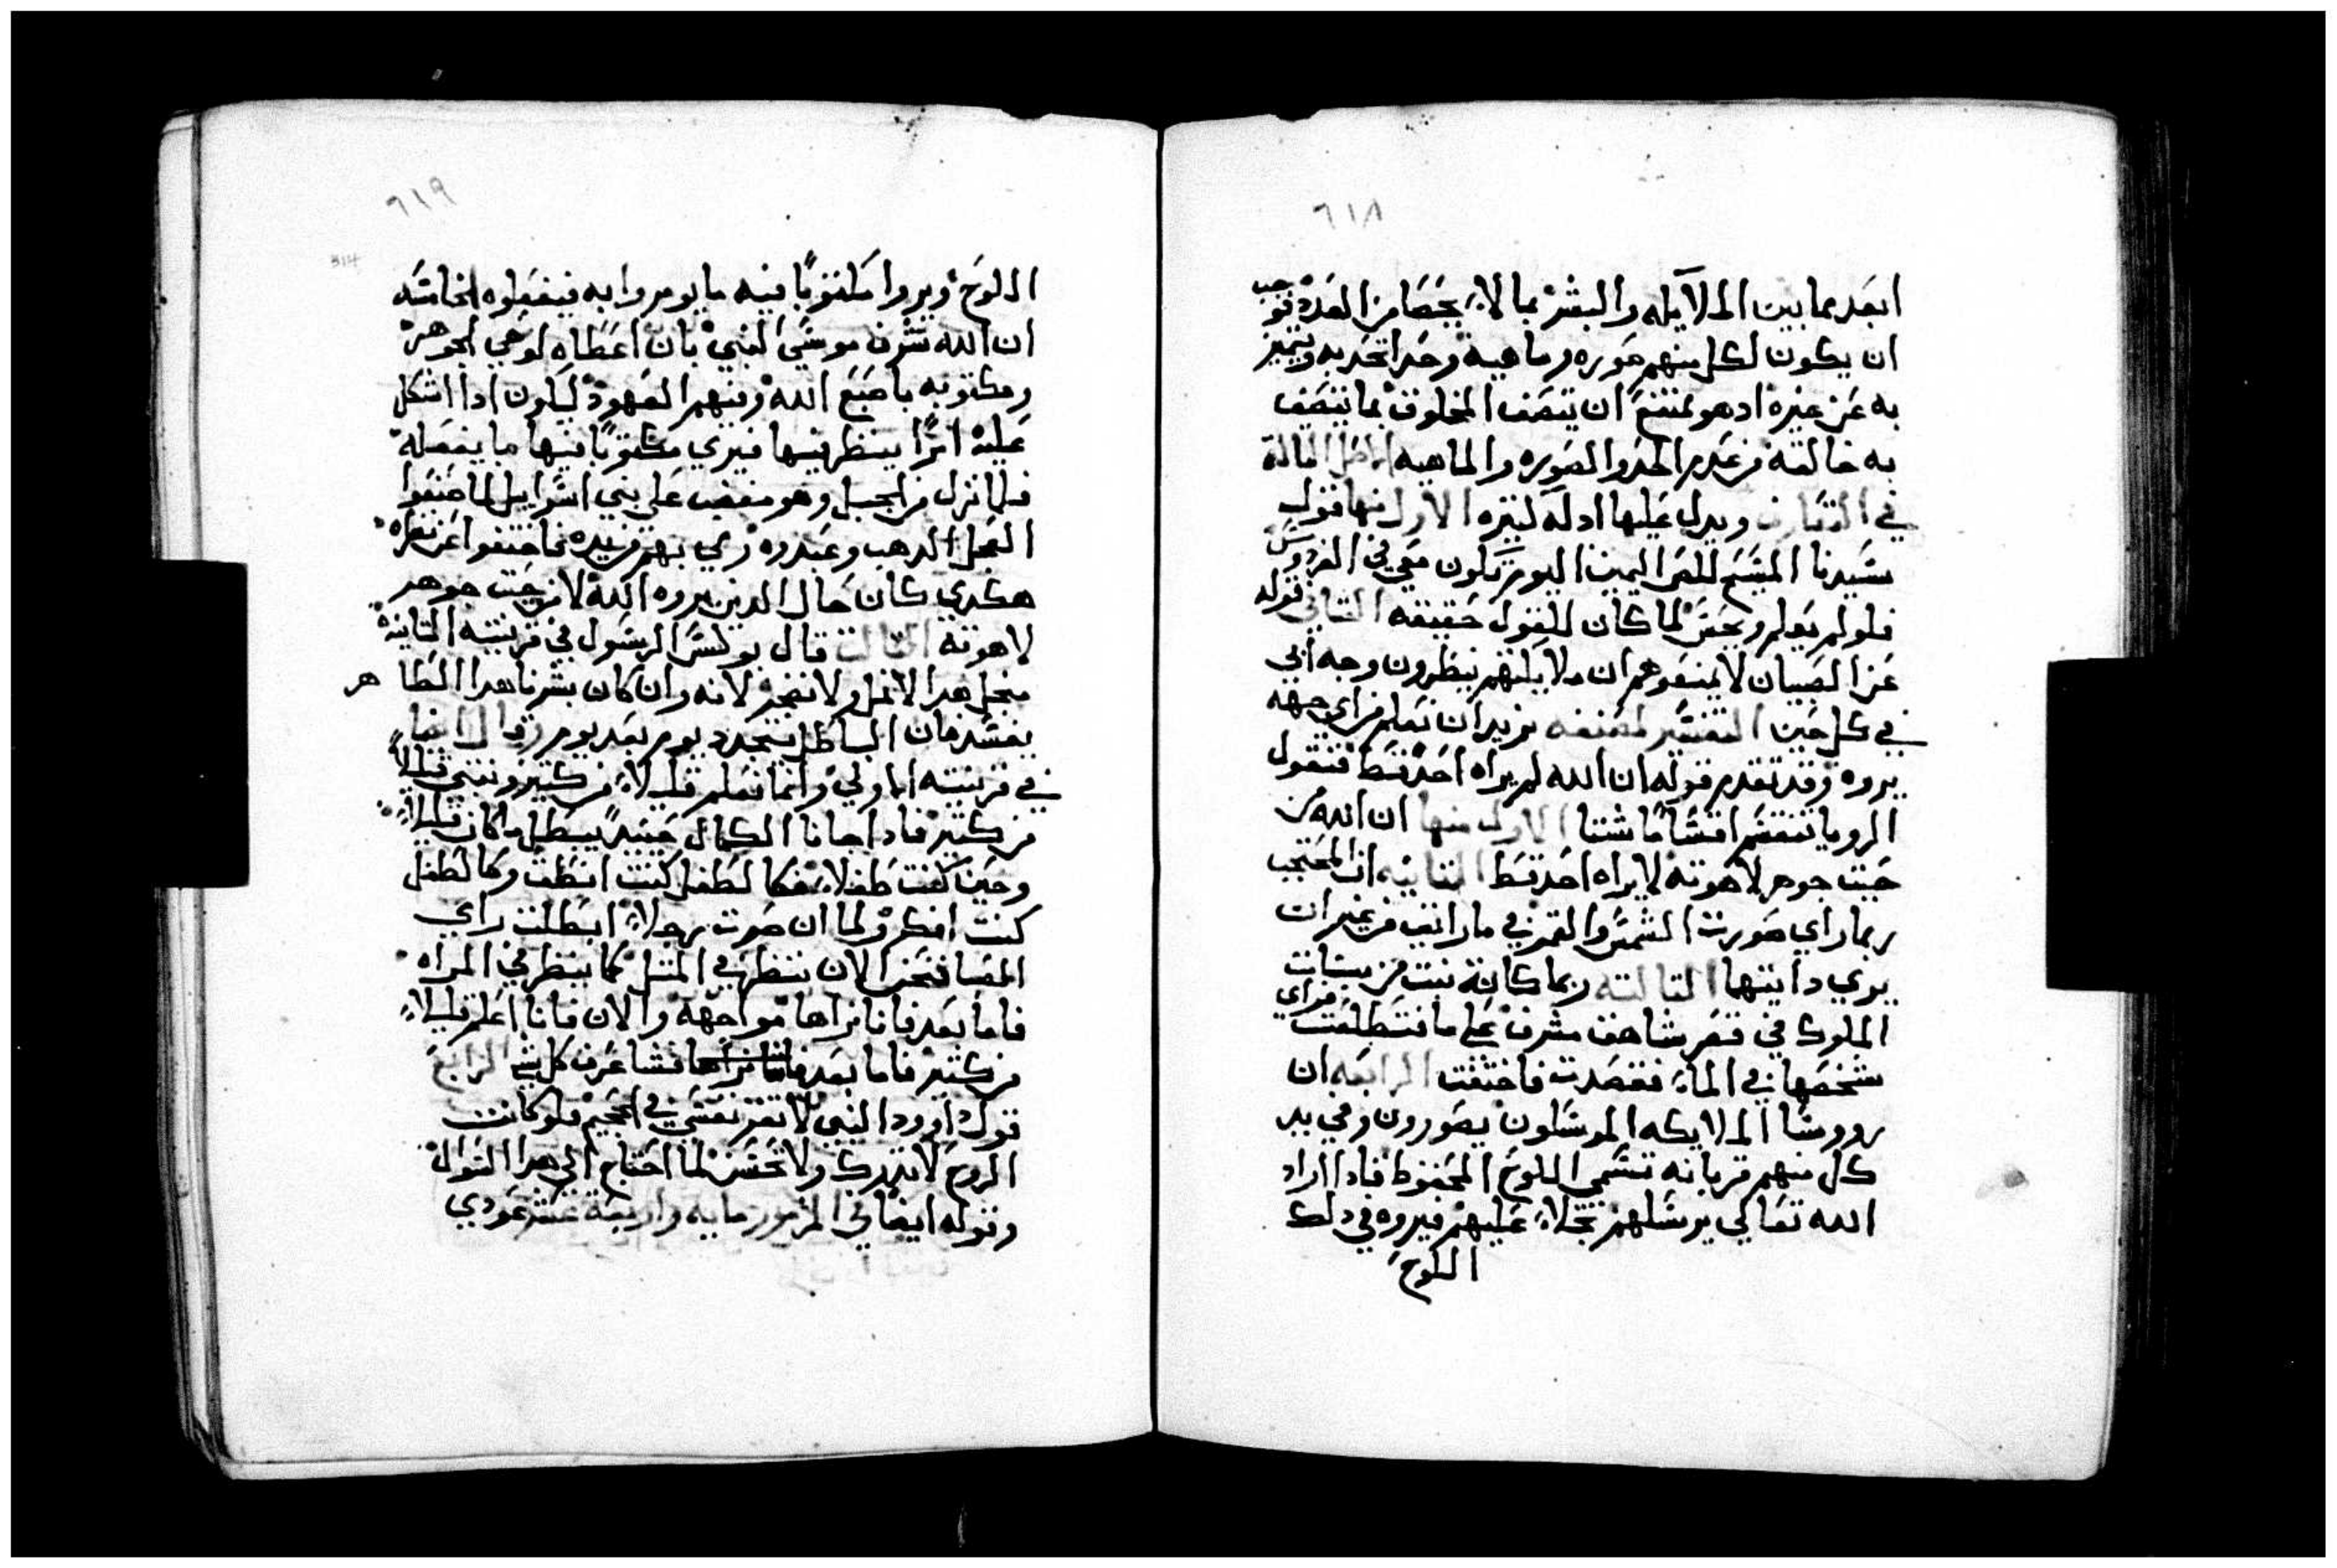 ٦١٨
ابعد مما بين الملآيكه والبشر بما لا يحصا من العدد فوجب
ان يكون لكل منهم صوره وماهية وحد اتحد به وتميز
به عن غيره اد هو ممتنع ان يتصف المخلوق بما يتصف
به خالقه من عدم الحد والصوره والماهيه الفصل الثالث
في التعارف ويدل عليها ادله كتيره الاول منها قول
سيدنا المسيح للص اليمين اليوم تكون معي في الفردوس
فلو لم يعلم ويحس لما كان للقول حقيقه التاني قوله
عن الصبيان لا تمنعوهم ان ملايكتهم ينظرون وجه ابي
في كل حين التفسير لمصنفه نريد ان نعلم من اي جهه
يروه وقد تقدم قوله ان الله لم يراه احد قط فنقول
الرويا تنقسم اقسامًا شتا الاول منها ان الله من
حيت جوهر لاهوته لا يراه احد قط التانيه ان المحتجب
ربما راي صورت الشمس والقمر في ماء رايق من غير ان
يري داتيتهما التالته ربما كانة بنت من بنات
الملوك في قصر شاهق مشرف علي ما فتطلعت فراي
شخصها في الماء فقصدت فاختفت الرابعه ان
رووسا الملايكه المرسلون يصورون وفي يد
كل منهم قربانه تسمي اللوح المحفوظ فادا اراد
الله تعالي يرسلهم تجلاء عليهم فيروه في دلك
اللوح
٦١٩
314
اللوح ويروا مكتوبًا فيه ما يومروا به فيفعلوه الخامسه
ان الله شرف موسي النبي بان اعطاه لوحي الجوهر
ومكتوبه باصبع الله وفيهم العهود ليكون ادا اشكل
عليه امرًا ينظر فيها فيري مكتوبًا فيها ما يفعله
فلما نزل من الجبل وهو مغضب علي بني اسراييل لما صنعوا
العجل الدهب وعبدوه رمي بهم من يده فاختفوا عن نظره
هكدي كان حال الدين يروه الله لا من حيت جوهر
لاهوته التالت قال بولس الرسول في قرنتيه التانيه
من اجل هدا لا نمل ولا نضجر لانه وان كان بشرنا هدا الظاهر
يفسد فان الباطن يتجدد يوم بعد يوم وقال ايضا
في قرنتيه الاولي وانما نعلم قليلاً من كتير ونتنبي قليلاً
من كتير فادا جانا الكمال حينيدٍ يبطل ما كان قليلاً
وحين كنت طفلاً فكالطفل كنت انطق وكالطفل
كنت افكر ولما ان صرت رجلاً ابطلت راي
الصبا فنحن الان ننظر في المتل كما ينظر في المراه
فاما بعد فاننا نراها مواجهة والان فانا اعلم قليلاً
من كتير فاما بعد فاننا نراها فسا عرف كل شي الرابع
قول داوود النبي لا تقر نفسي في الجحيم فلو كانت
الروح لا تدرك ولا تحس لما احتاج الي هدا السوال
وقوله ايضا في المزمور مايه واربعة عشر عودي